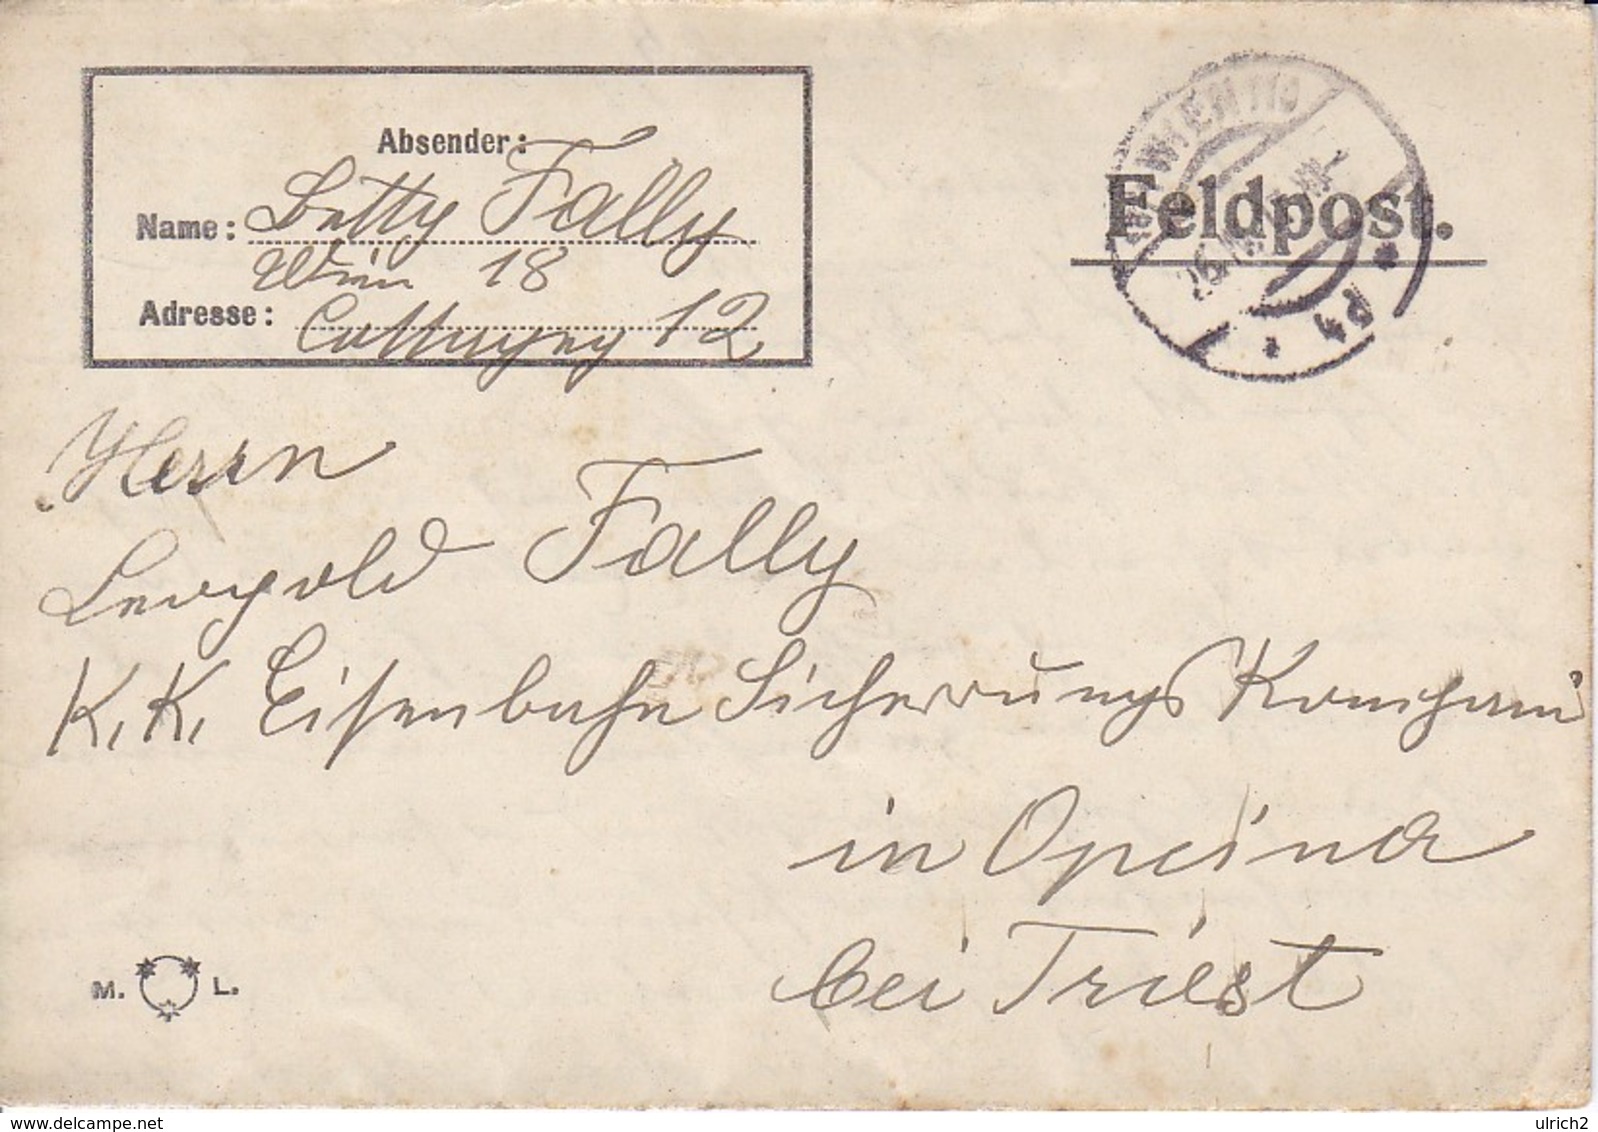 Absender:
Name: Betty Fally
Wien 18
Adresse: 12
WIEN 110
4d
Feldpost.
Herrn
Leopold Fally
K. K. Eisenbahn Sicherrungs Kompani
in Opcina
bei Triest
M. L.
www.delcampe.net
ulrich2